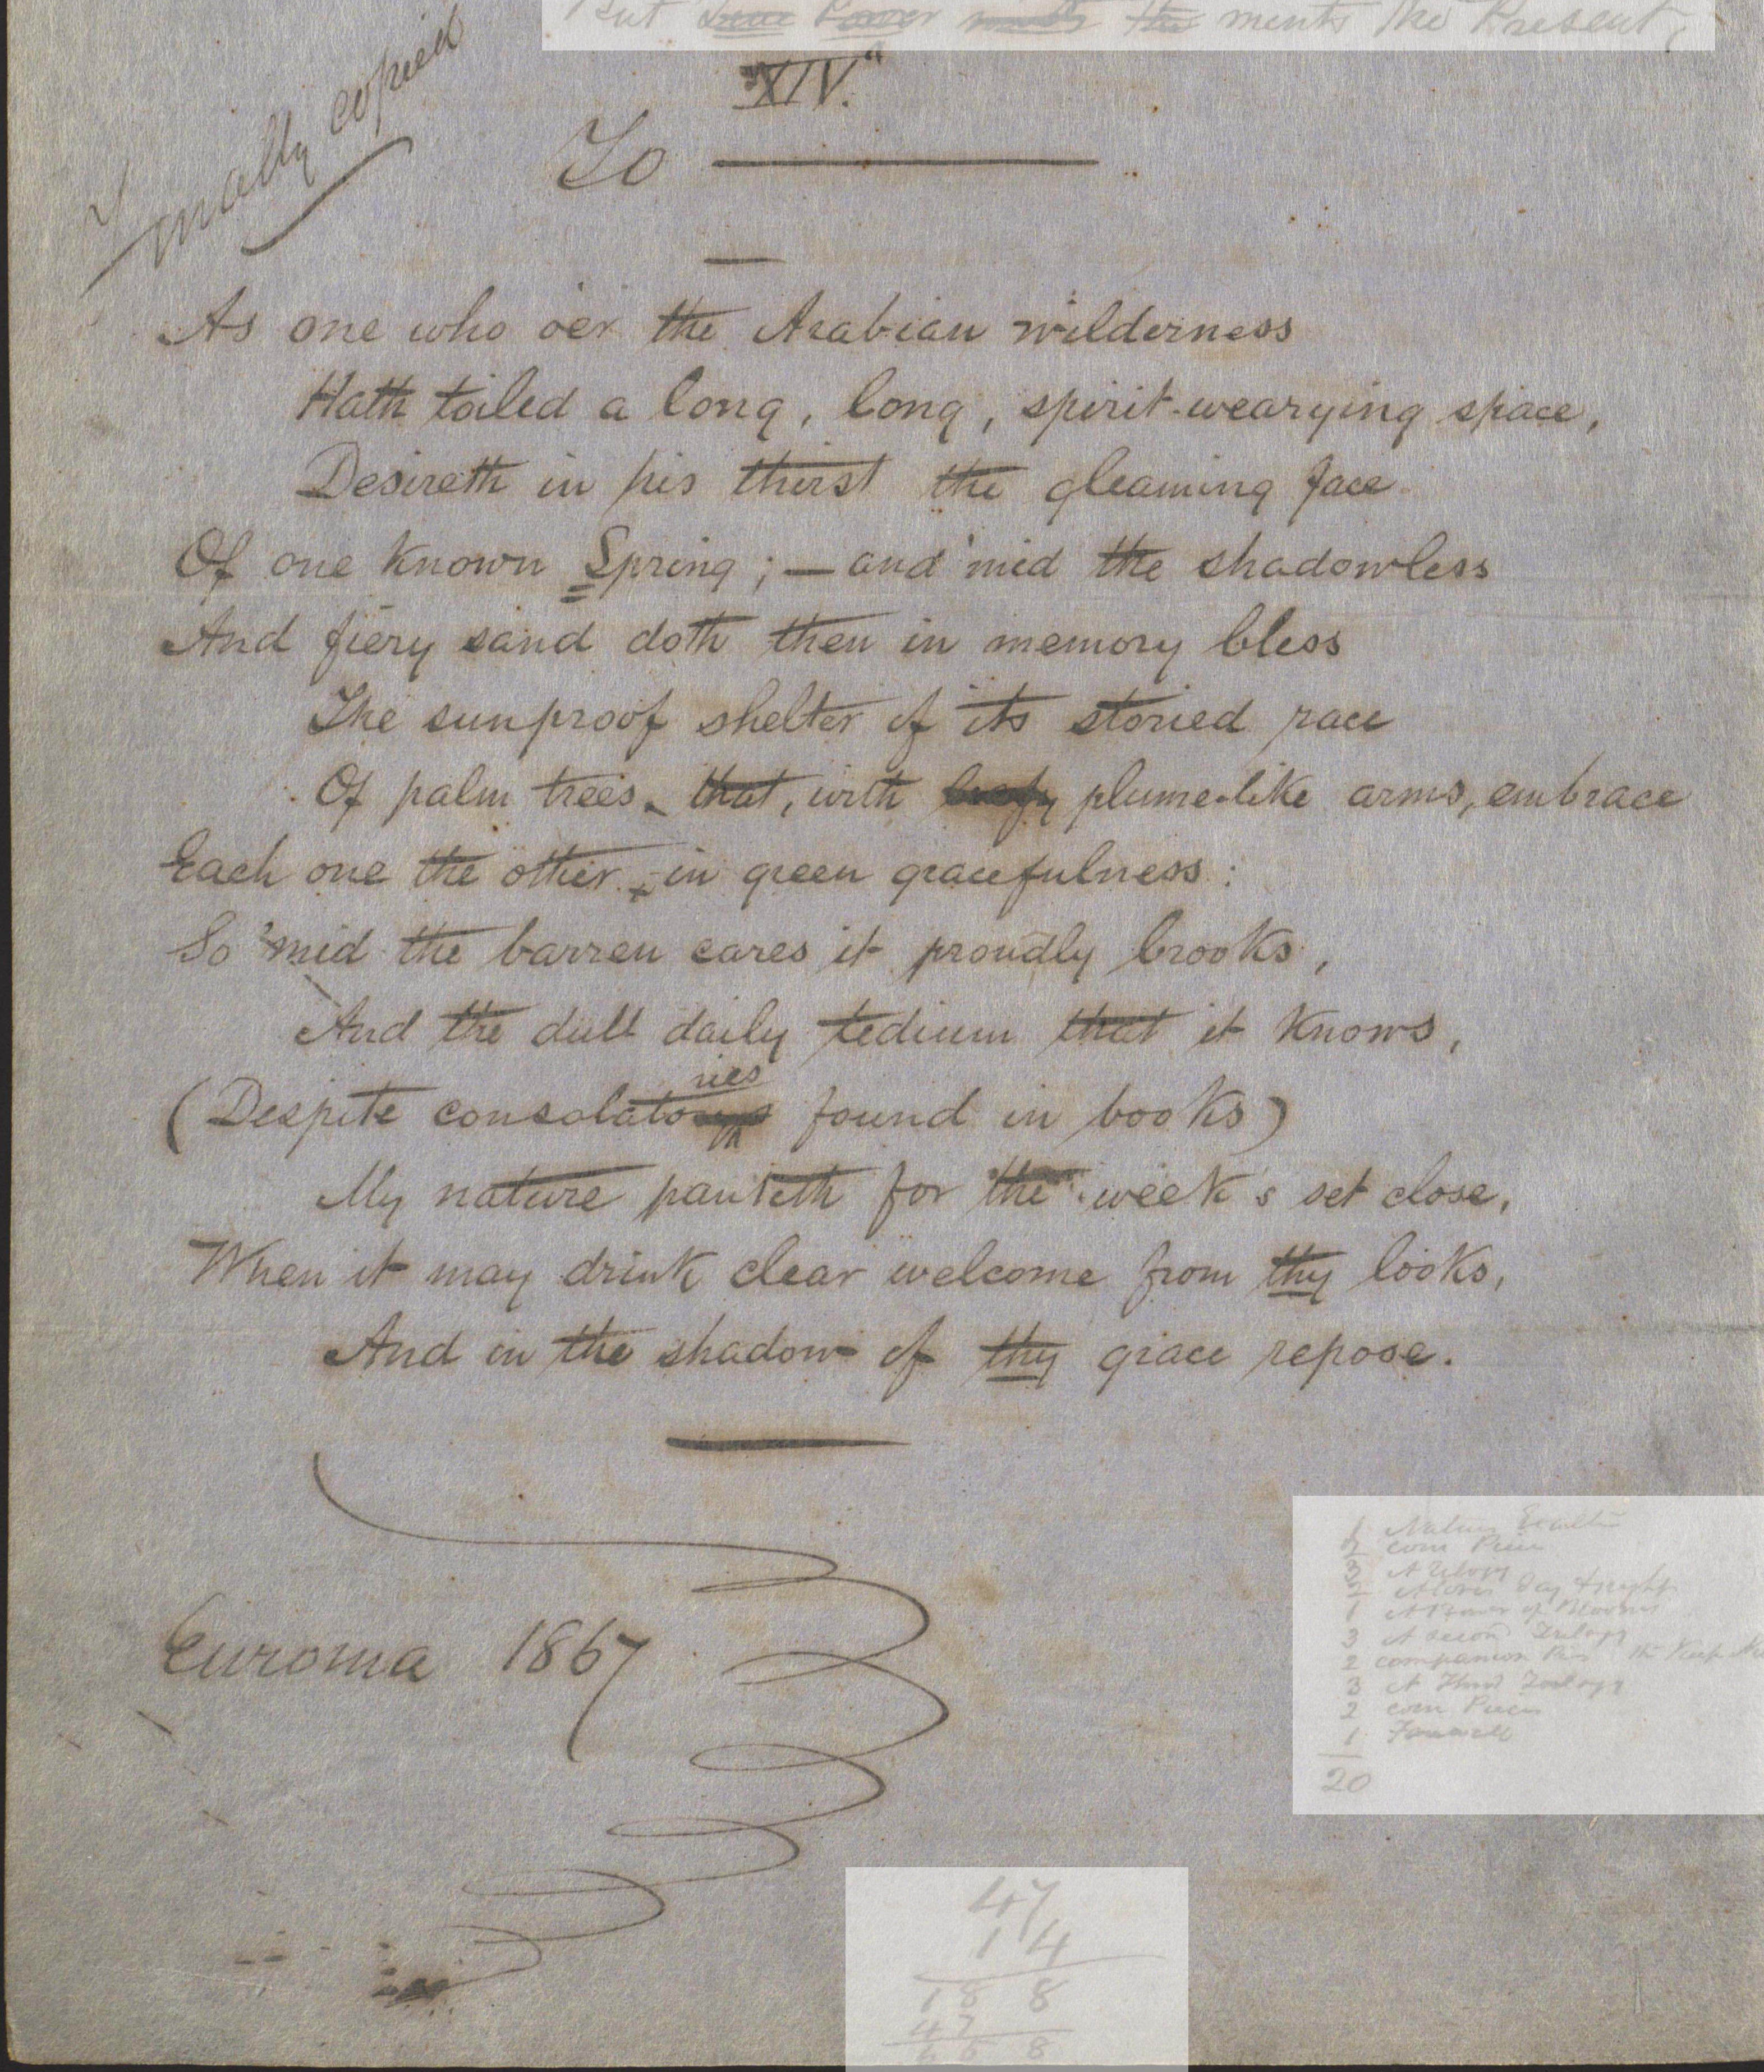 But the ments the Present,
"XIV."
Finally copied
To
As one who o'er the Arabian wilderness
Hath toiled a long, long, spirit-wearying space,
Desireth in his thirst the gleaming face
Of one known Spring; — and 'mid the shadowless
And fiery sand doth then in memory bless
The sunproof shelter of its storied race
Of palm trees that, with leafy plume-like arms, embrace
Each one the other in green gracefulness:
So 'mid the barren cares it proudly brooks,
And the dull daily tedium that it knows,
(Despite consolatories found in books)
My nature panteth for the week's set close,
When it may drink clear welcome from thy looks,
And in the shadow of thy grace repose.
Euroma 1867
1 Nature
2 com Piece
3 A Trilogy
2 Day & night
1 A Bower of Blooms
3 A second Trilogy
2 companion
3 A Third Trilogy
2 com Pieces
1 Farewell
20
47
14
188
47
658